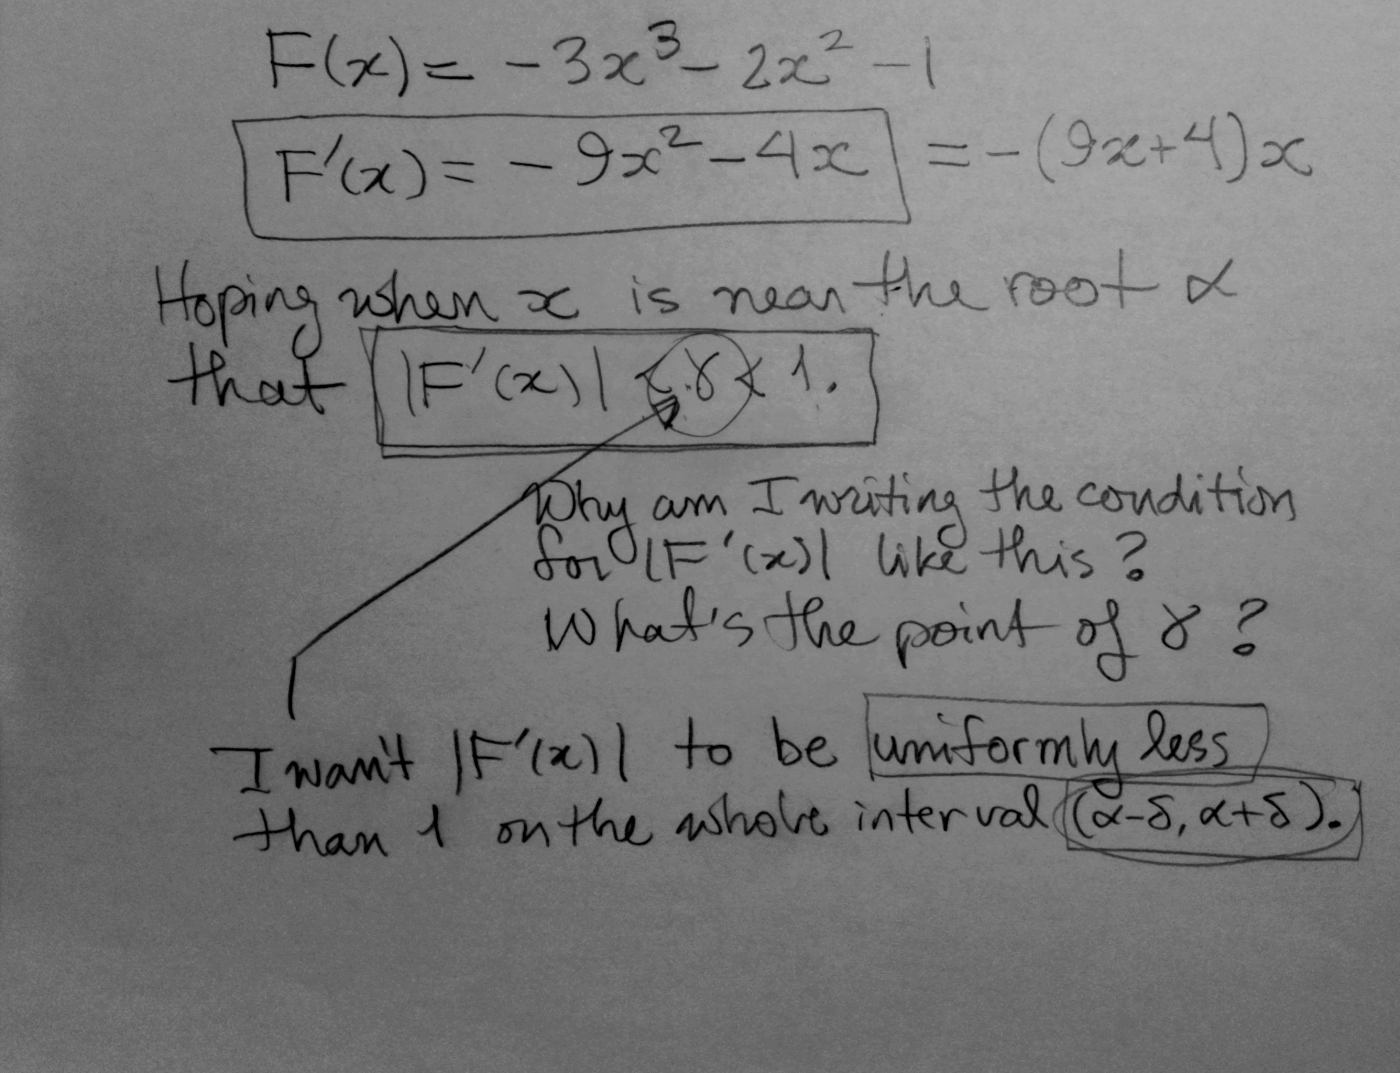 F(x) = -3x³ - 2x² - 1
F'(x) = -9x² - 4x = -(9x+4)x
Hoping when x is near the root α
that |F'(x)| < γ < 1.
Why am I writing the condition
for |F'(x)| like this?
What's the point of γ?
I want |F'(x)| to be uniformly less
than 1 on the whole interval (α-δ, α+δ).